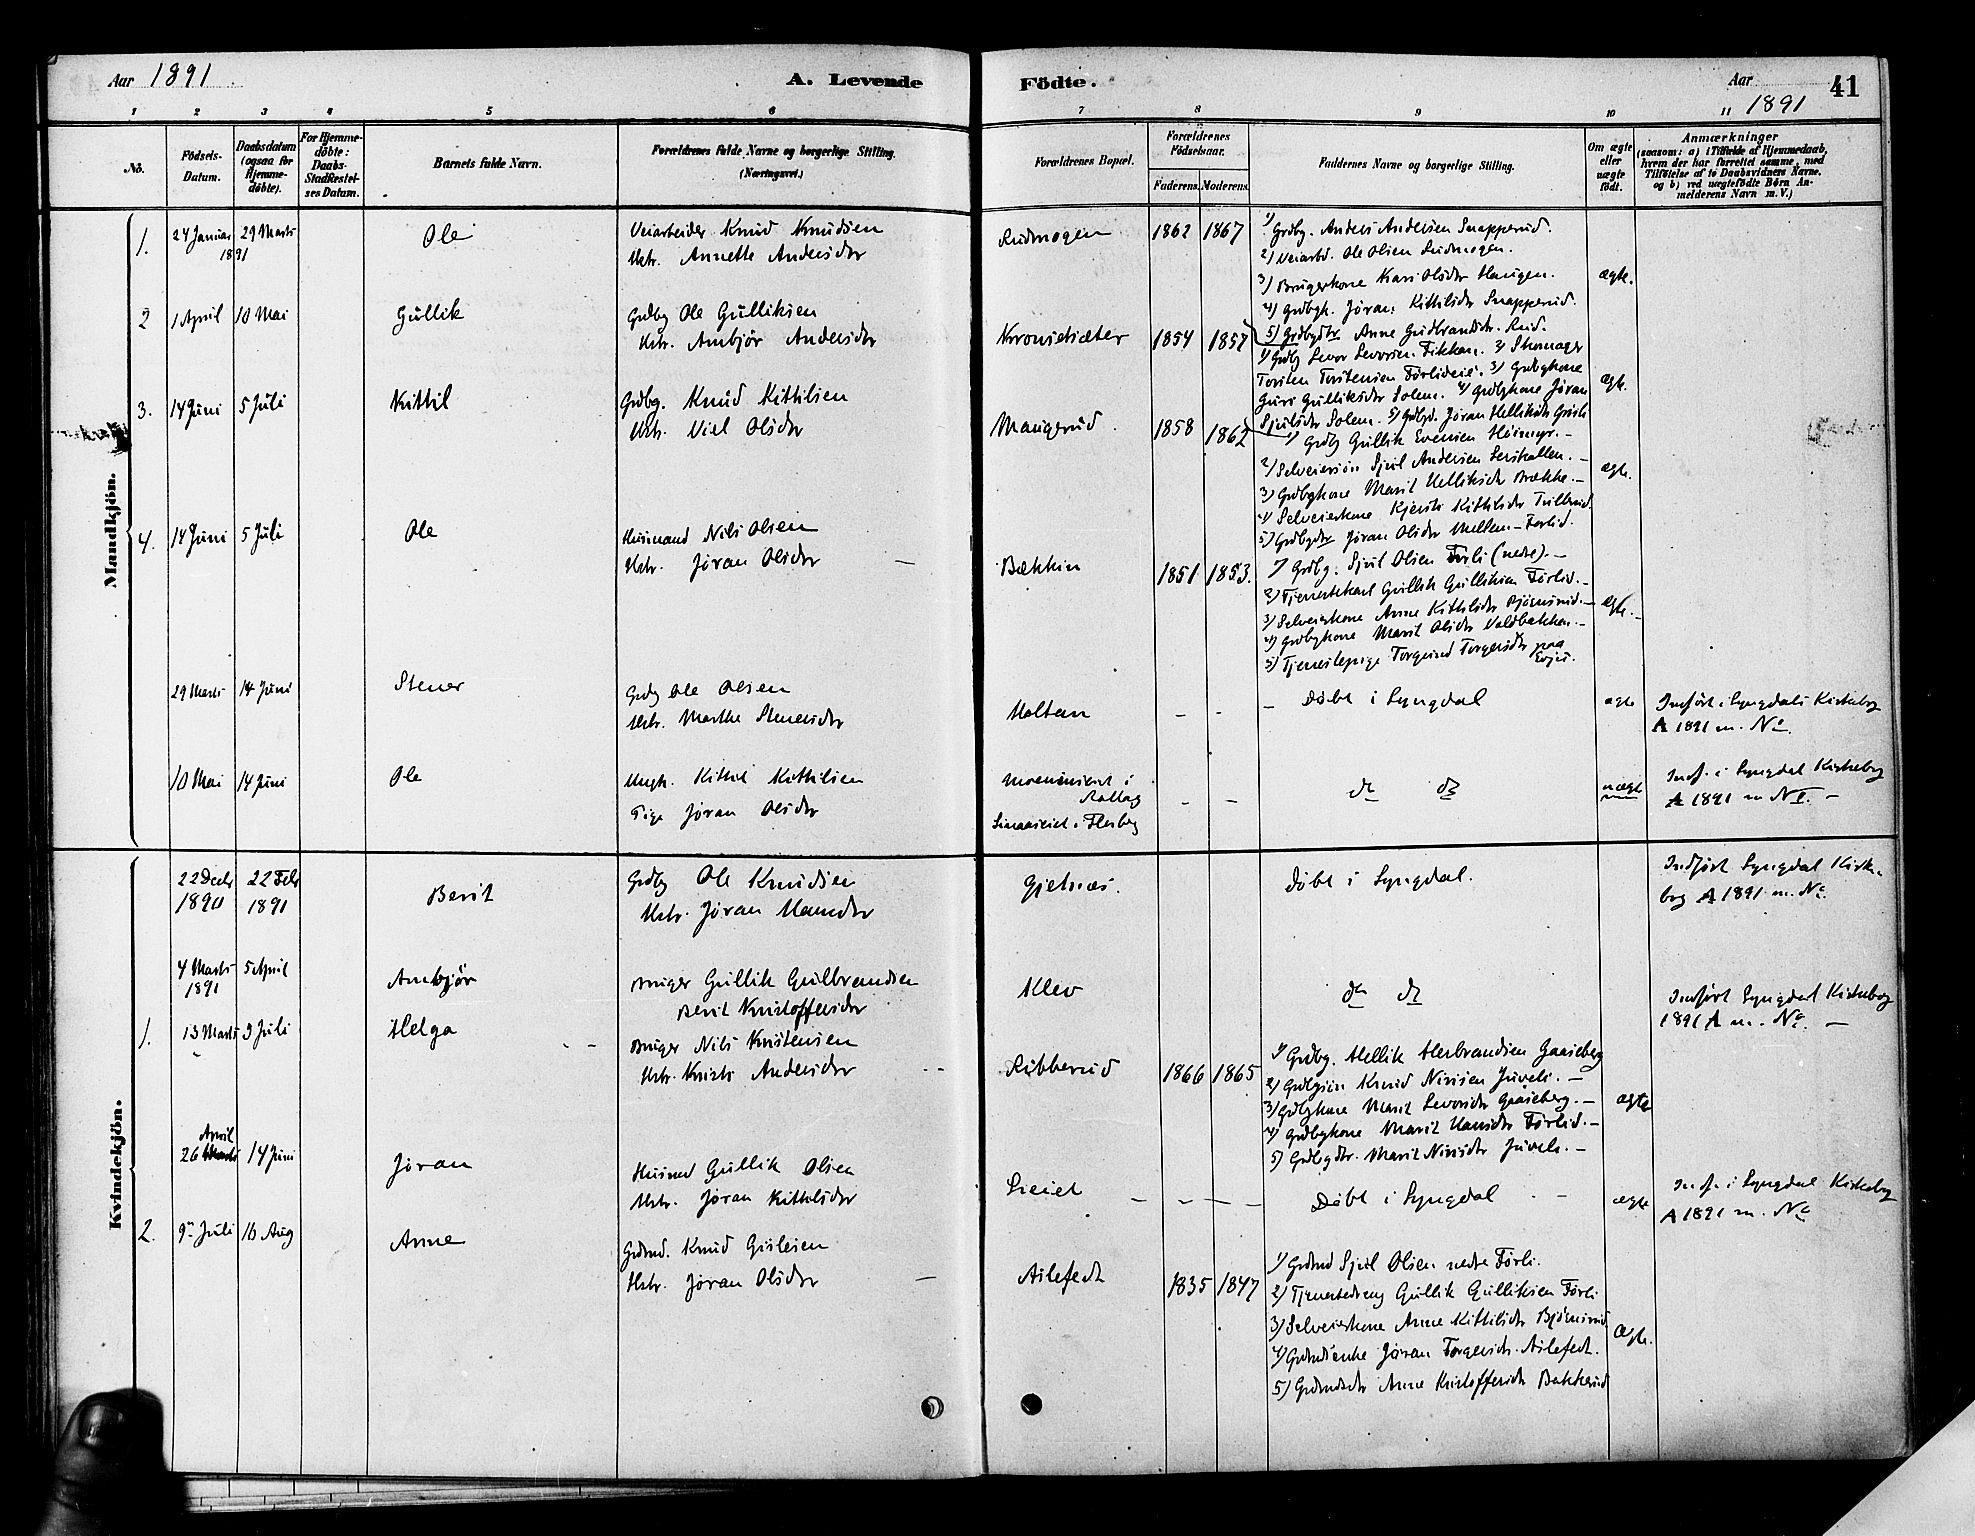 Aar 1891 A. Levende Födte. Aar 1891 41
1 2 3 4 5 6 7 8 9 10 11
No. Födsels-Datum. Daabsdatum (ogsaa for Hjemme-döbte). For Hjemme-döbte: Daabs-Stadfæstel-ses Datum. Barnets fulde Navn. Forældrenes fulde Navne og borgerlige Stilling. (Næringsvei.) Forældrenes Bopæl. Forældrenes Födselsaar. Faderens. Moderens. Faddernes Navne og borgerlige Stilling. Om ægte eller uægte født. Anmærkninger (saasom: a) i Tilfælde af Hjemmedaab, hvem der har forrettet samme, med Tilföielse af to Daabsvidners Navne. og b) ved uægtefödte Börn An-melderens Navn m. V.)
Mandkjön.
1. 24 Januar 1891 29 Marts Ole Veiarbeider Knud Knudsen
Hstr. Annette Andersdtr Rudmogen 1862 1867 1) Grdbg. Anders Andersen Snapperud.
2) Veiarbd. Ole Olsen Rudmogen.
3) Brugerkone Kari Olsdtr Haugen. ægte.
4) Grdbgk. Jøran Kittilsdtr Snapperud.
5) Grdbgdtr Anne Gudbrandsdtr. Rud.
2 1 April 10 Mai Gullik Grdbg Ole Gulliksen
Hstr. Ambjør Andersdtr 1854 1857 1) Grdbg Sevor Sevorsen Fikkan. 2) Skomager
Torsten Torstensen Førlideie. 3) Grdbgkone
Guri Gulliksdtr Solem. 4) Grdbgkone Jøran ægte.
Sjulsdtr Solem. 5) Grdbgd. Jøran Helliksdtr
3. 14 Juni 5 Juli Kittil Grdbg. Knud Kittilsen
Hstr. Viel Olsdtr Maugerud. 1858 1862 1) Grdbg Gullik Evensen Høimyr. –
2) Selveiersøn Sjul Andersen –
3) Grdbgkone Marit Helliksdtr Bække. – ægte.
4) Selveierkone Kjersti Kittilsdtr
5) Grdbgdtr Jøran Olsdtr Mellem-Førlid.
4. 14 Juni 5 Juli Ole Husmand Nils Olsen
Hstr. Jøran Olsdtr – Bækkin 1851 1853. 1) Grdbg. Sjul Olsen Førli (nedre). –
2) Tjenestekarl Gullik Gulliksen Førlid. –
3) Selveierkone Anne Kittilsdtr Bjørnsrud. – ægte. –
4) Grdbgkone Marit Olsdtr –
5) Tjenestepige Torgund Torgersdtr paa
Evju.
29 Marts 14 Juni Stener Grdbg Ole Olsen
Hstr. Marthe Stenersdtr Moltem – – – Døbt i Lyngdal ægte Indført i Lyngdals Kirkebog
A 1891 m. No.
10 Mai 14 Juni Ole Ungk. Kittil Kittilsen
Pige Jøran Olsdtr i
Rollag
i Flesberg – – do do uægte Indf. i Lyngdal Kirkebog
A 1891 m No 1. –
Kvindekjön.
22 Decbr 1890 22 Febr 1891 Berit Grdbg Ole Knudsen
Hstr. Jøran Hansdtr Gjetnæs. Døbt i Lyngdal. Indført Lyngdal Kirke-
bog A 1891 m. No.
4 Marts 1891 5 April Ambjør Bruger Gullik Gulbrandsen
Berit Kristoffersdtr Klev do do Indført Lyngdal Kirkebog
1891 A m. No. –
1. 13 Marts 3 Juli Helga Bruger Nils Kristensen
Hstr. Kristi Andersdtr Ribberud 1866 1865 1) Grdbg. Hellik Herbrandsen Gaaseberg
2) Grdbgsøn Knud Nirisen Juveli. –
3) Grdbgkone Marit Sevorsdtr Gaaseberg. – ægte
4) Grdbgkone Marit Hansdtr Førlid. –
5) Grdbgdtr. Marit Nirisdtr Juveli. –
April
26 Marts 14 Juni Jøran Husmd Gullik Olsen
Hstr. Jøran Kittilsdtr – – – – Døbt i Lyngdal – ægte Indf. i Lyngdal Kirkebog
A 1891 m. No
2. 9n Juli 16 Aug Anne Grdmd. Knud Gislesen
Hstr. Jøran Olsdtr – Aslefedt 1835 1847 1) Grdmd Sjul Olsen nedre Førli.
2) Tjenestedreng Gullik Gulliksen Førli
3) Selveierkone Anne Kittilsdtr Bjørnsrud
4) Grdmdenke Jøran Torgersdtr. Aslefedt. ægte.
5) Grdmdsdtr Anne Kristoffersdtr Bakkerud